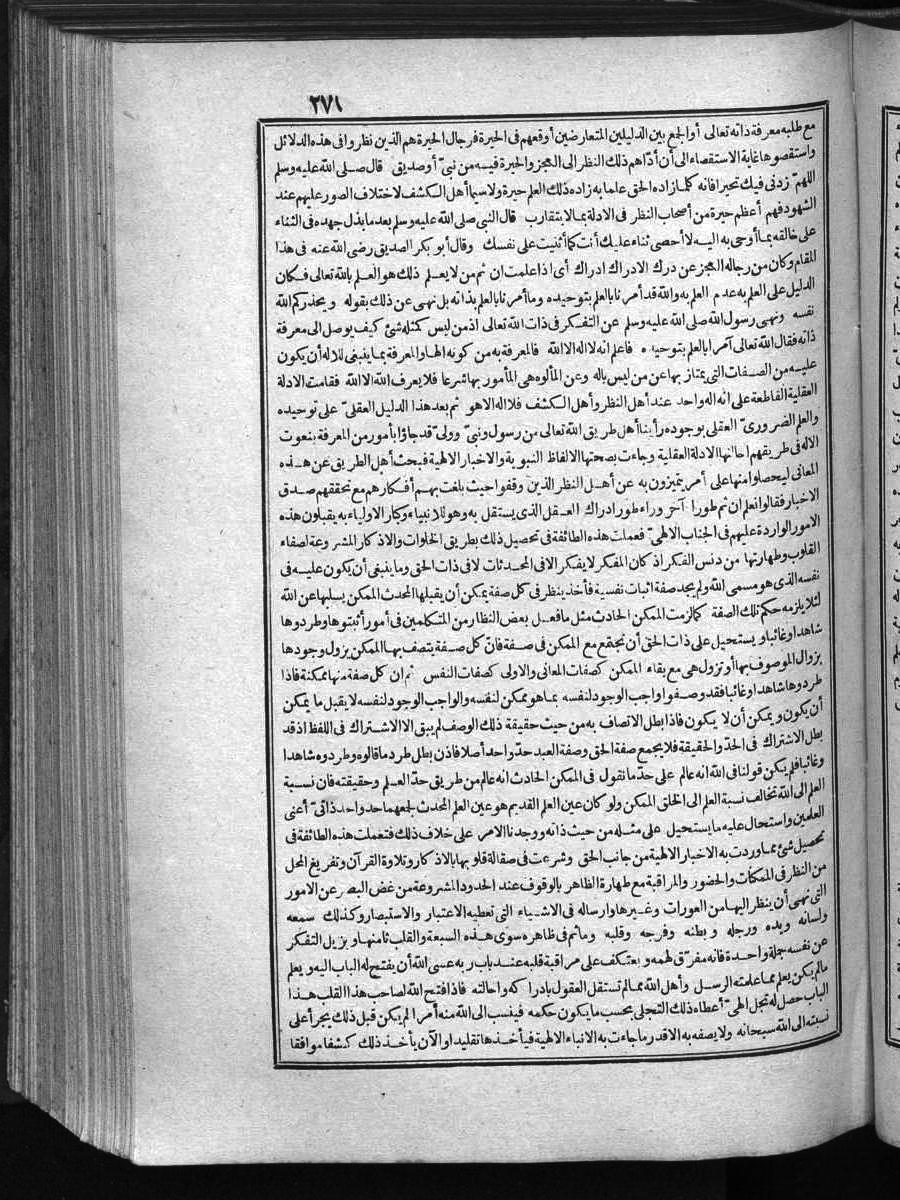 ٢٧١
مع طلبه معرفة ذاته تعالى أو الجمع بين الدليلين المتعارضين أوقعهم فى الحيرة فرجال الحيرة هم الذين نظروا فى هذه الدلائل
واستقصوها غاية الاستقصاء الى أن أدّاهم ذلك النظر الى العجز والحيرة فيه من نبىّ أو صديق قال صلى الله عليه وسلم
اللهمّ زدنى فيك تحيرا فانه كلما زاده الحق علما به زاده ذلك العلم حيرة ولاسيما أهل الكشف لاختلاف الصور عليهم عند
الشهود فهم أعظم حيرة من أصحاب النظر فى الادلة بما لا يتقارب قال النبى صلى الله عليه وسلم بعد ما بذل جهده فى الثناء
على خالقه بما أوحى به اليه لا أحصى ثناء عليك أنت كما أثنيت على نفسك وقال أبو بكر الصديق رضى الله عنه فى هذا
المقام وكان من رجاله العجز عن درك الادراك ادراك أى اذا علمت ان ثم من لا يعلم ذلك هو العلم بالله تعالى فكان
الدليل على العلم به عدم العلم به والله قد أمرنا بالعلم بتوحيده وما أمرنا بالعلم بذاته بل نهى عن ذلك بقوله ويحذركم الله
نفسه ونهى رسول الله صلى الله عليه وسلم عن التفكر فى ذات الله تعالى اذ من ليس كمثله شئ كيف يوصل الى معرفة
ذاته فقال الله تعالى آمرا بالعلم بتوحيده فاعلم انه لا اله الا الله فالمعرفة به من كونه الها والمعرفة بما ينبغى للاله أن يكون
عليه من الصفات التى يمتاز بها عن من ليس باله وعن المألوه هى المأمور بها شرعا فلا يعرف الله الا الله فقامت الادلة
العقلية القاطعة على انه اله واحد عند أهل النظر وأهل الكشف فلا اله الا هو ثم بعد هذا الدليل العقلىّ على توحيده
والعلم الضرورىّ العقلى بوجوده رأينا أهل طريق الله تعالى من رسول ونبىّ وولىّ قد جاؤا بأمور من المعرفة بنعوت
الاله فى طريقهم احالتها الادلة العقلية وجاءت بصحتها الالفاظ النبوية والاخبار الالهية فبحث أهل الطريق عن هذه
المعانى ليحصلوا منها على أمر يتميزون به عن أهل النظر الذين وقفوا حيث بلغت بهم أفكارهم مع تحققهم صدق
الاخبار فقالوا نعلم ان ثم طورا آخر وراء طور ادراك العقل الذى يستقل به وهو للانبياء وكبار الاولياء به يقبلون هذه
الامور الواردة عليهم فى الجناب الالهىّ فعملت هذه الطائفة فى تحصيل ذلك بطريق الخلوات والاذكار المشروعة لصفاء
القلوب وطهارتها من دنس الفكر اذ كان المفكر لا يفكر الا فى المحدثات لا فى ذات الحق وما ينبغى أن يكون عليه فى
نفسه الذى هو مسمى الله ولم يجد صفة اثبات نفسية فأخذ ينظر فى كل صفة يمكن أن يقبلها المحدث الممكن يسلبها عن الله
لئلا يلزمه حكم تلك الصفة كما لزمت الممكن الحادث مثل ما فعل بعض النظار من المتكلمين فى أمور أثبتوها وطردوها
شاهدا وغائبا ويستحيل على ذات الحق أن تجتمع مع الممكن فى صفة فانّ كل صفة يتصف بها الممكن يزول وجودها
بزوال الموصوف بها أو تزول هى مع بقاء الممكن كصفات المعانى والاولى كصفات النفس ثم ان كل صفة منها ممكنة فاذا
طردوها شاهدا وغائبا فقد وصفوا واجب الوجود لنفسه بما هو ممكن لنفسه والواجب الوجود لنفسه لا يقبل ما يمكن
أن يكون ويمكن أن لا يكون فاذا بطل الاتصاف به من حيث حقيقة ذلك الوصف لم يبق الا الاشتراك فى اللفظ اذ قد
بطل الاشتراك فى الحدّ والحقيقة فلا يجمع صفة الحق وصفة العبد حدّ واحد أصلا فاذن بطل طرد ما قالوه وطردوه شاهدا
وغائبا فلم يكن قولنا فى الله انه عالم على حدّ ما نقول فى الممكن الحادث انه عالم من طريق حدّ العلم وحقيقته فان نسبة
العلم الى الله تخالف نسبة العلم الى الخلق الممكن ولو كان عين العلم القديم هو عين العلم المحدث لجمعهما حد واحد ذاتىّ أعنى
العلمين واستحال عليه ما يستحيل على مثله من حيث ذاته ووجدنا الامر على خلاف ذلك فتعملت هذه الطائفة فى
تحصيل شئ مما وردت به الاخبار الالهية من جانب الحق وشرعت فى صقالة قلوبها بالاذكار وتلاوة القرآن وتفريغ المحل
من النظر فى الممكنات والحضور والمراقبة مع طهارة الظاهر بالوقوف عند الحدود المشروعة من غض البصر عن الامور
التى نهى أن ينظر اليها من العورات وغيرها وارساله فى الاشياء التى تعطيه الاعتبار والاستبصار وكذلك سمعه
ولسانه ويده ورجله وبطنه وفرجه وقلبه وما ثم فى ظاهره سوى هذه السبعة والقلب ثامنها ويزيل التفكر
عن نفسه جملة واحدة فانه مفرّق لهمه ويعتكف على مراقبة قلبه عند باب ربه عسى الله أن يفتح له الباب اليه ويعلم
مالم يكن يعلم مما علمته الرسل وأهل الله مما لم تستقل العقول بادراكه واحالته فاذا فتح الله لصاحب هذا القلب هذا
الباب حصل له تجل الهىّ أعطاه ذلك التجلى بحسب ما يكون حكمه فينسب الى الله منه أمرا لم يكن قبل ذلك يجرأ على
نسبته الى الله سبحانه ولا يصفه به الا قدر ما جاءت به الانباء الالهية فيأخذها تقليدا والآن يأخذ ذلك كشفا موافقا